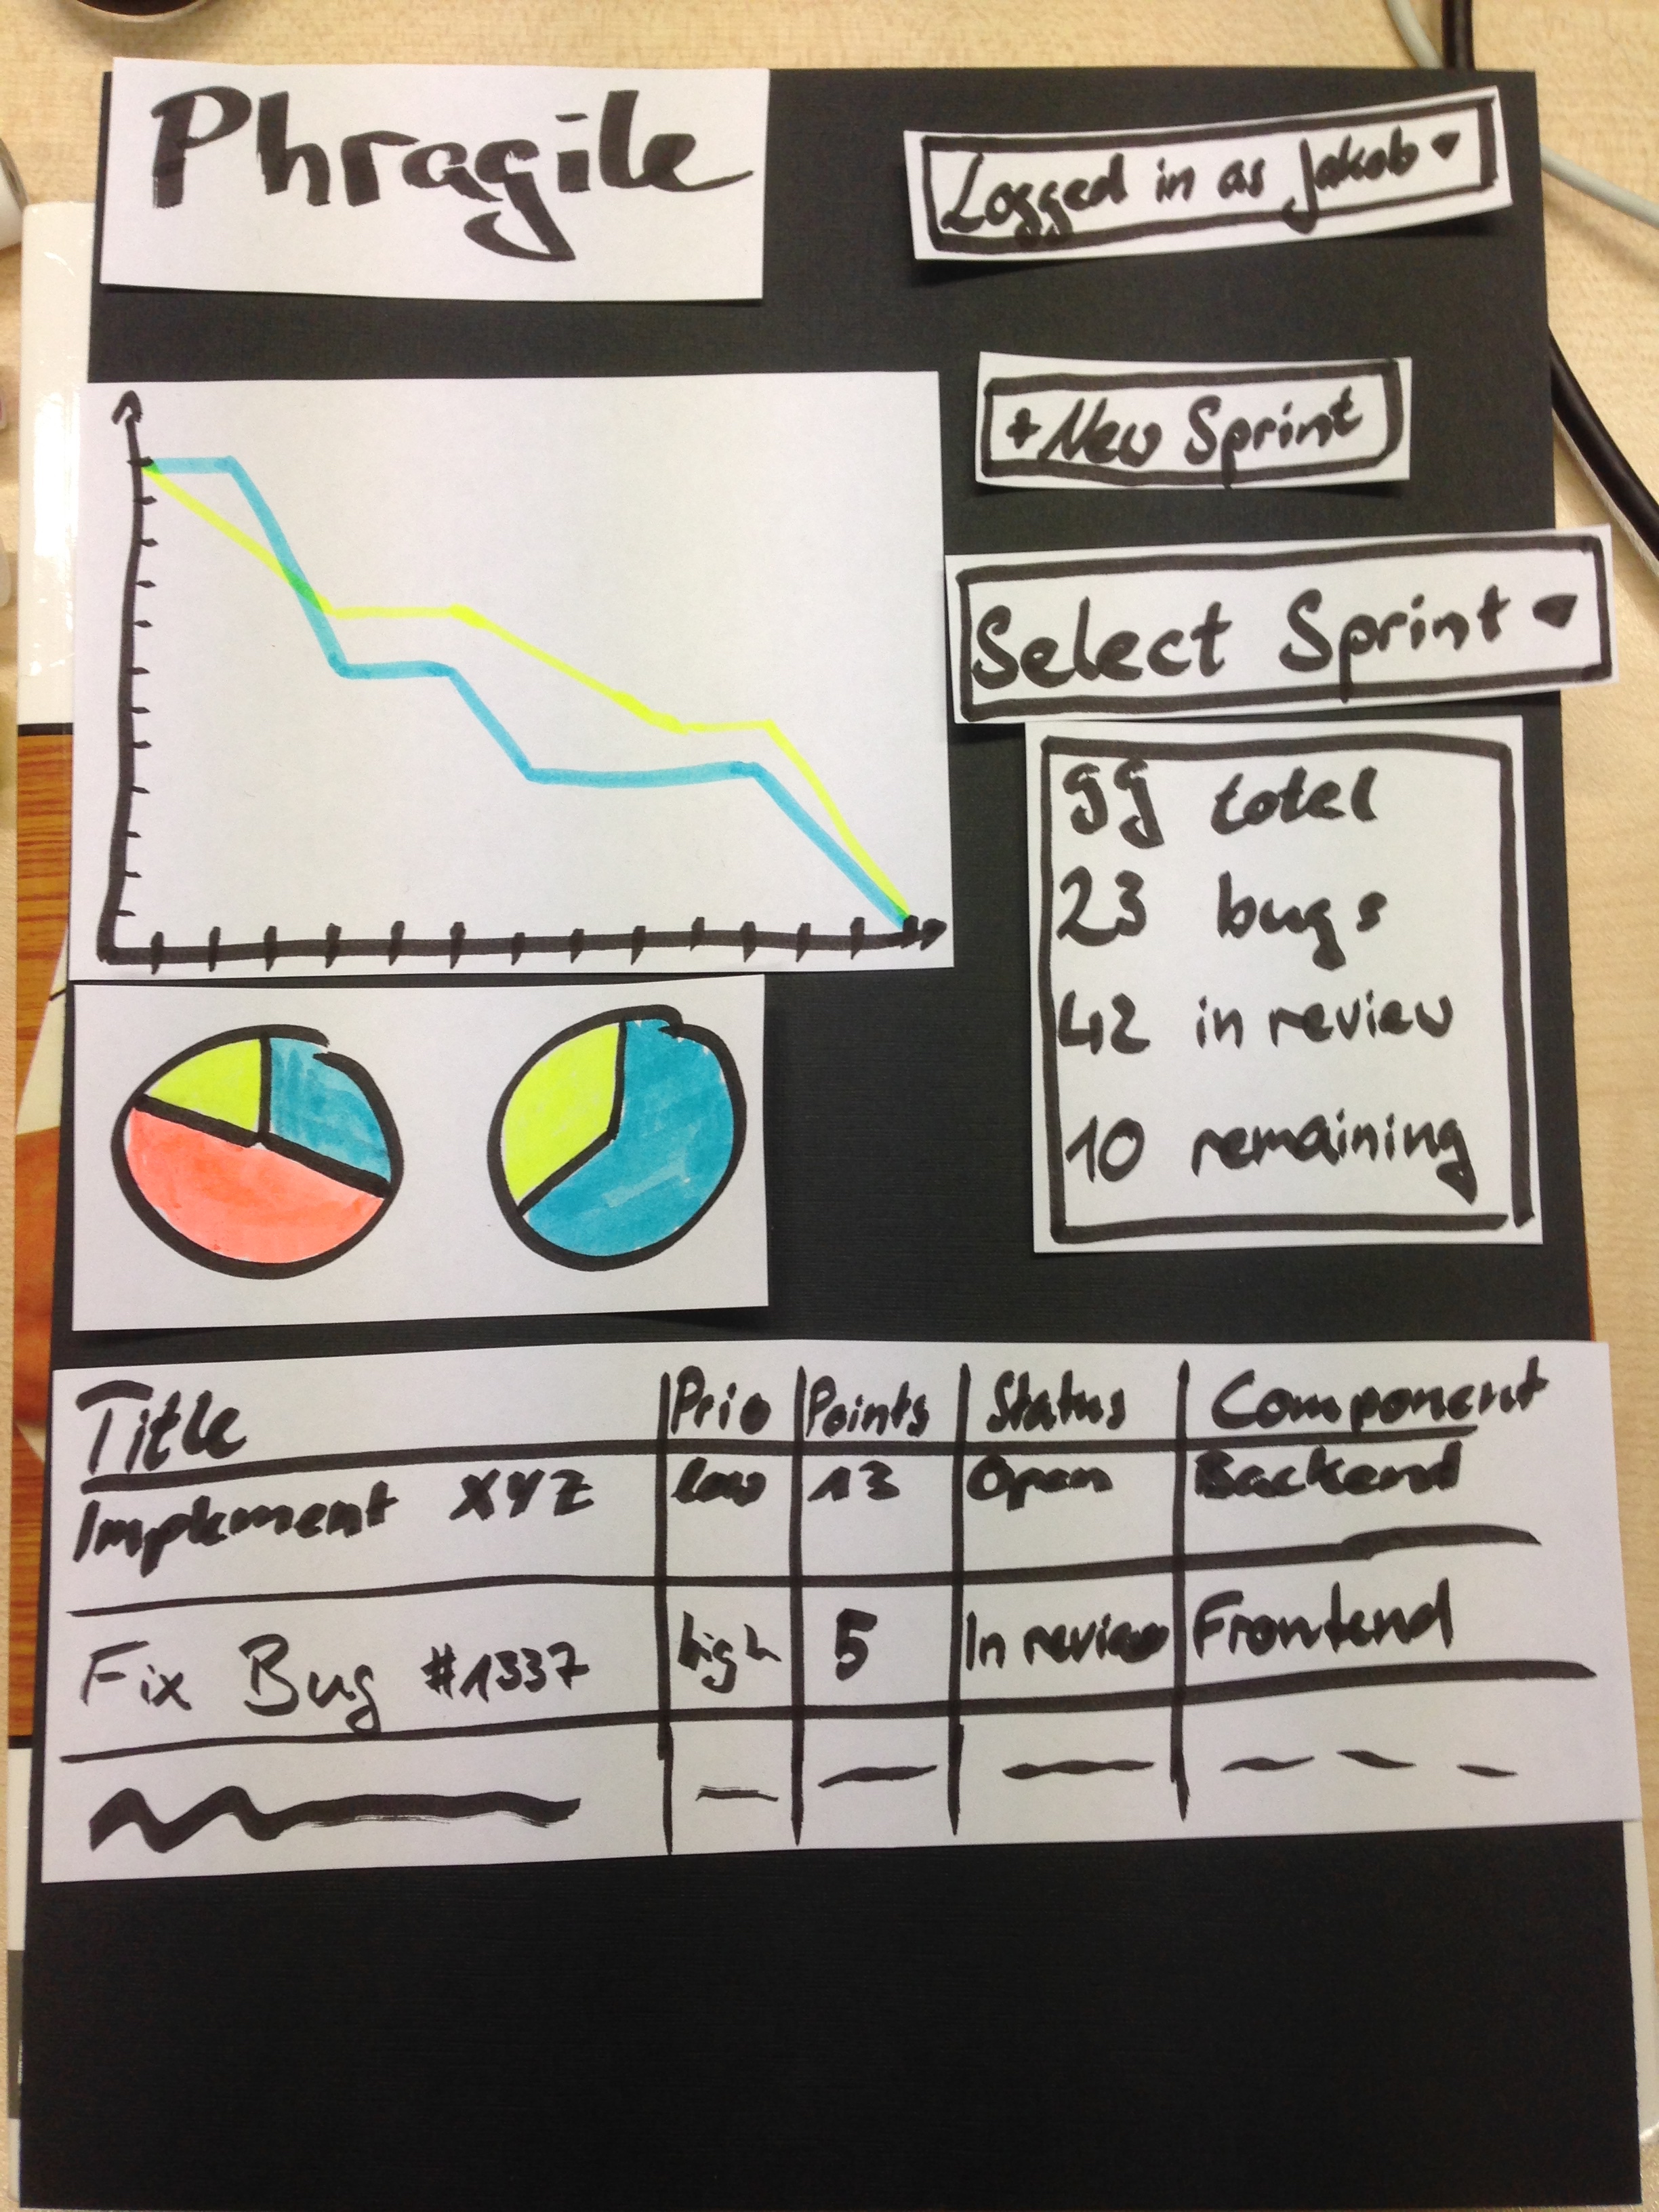 Phragile
Logged in as Jakob
+ New Sprint
Select Sprint
99 total
23 bugs
42 in review
10 remaining
Title Prio Points Status Component
Implement XYZ low 13 Open Backend
Fix Bug #1337 high 5 In review Frontend